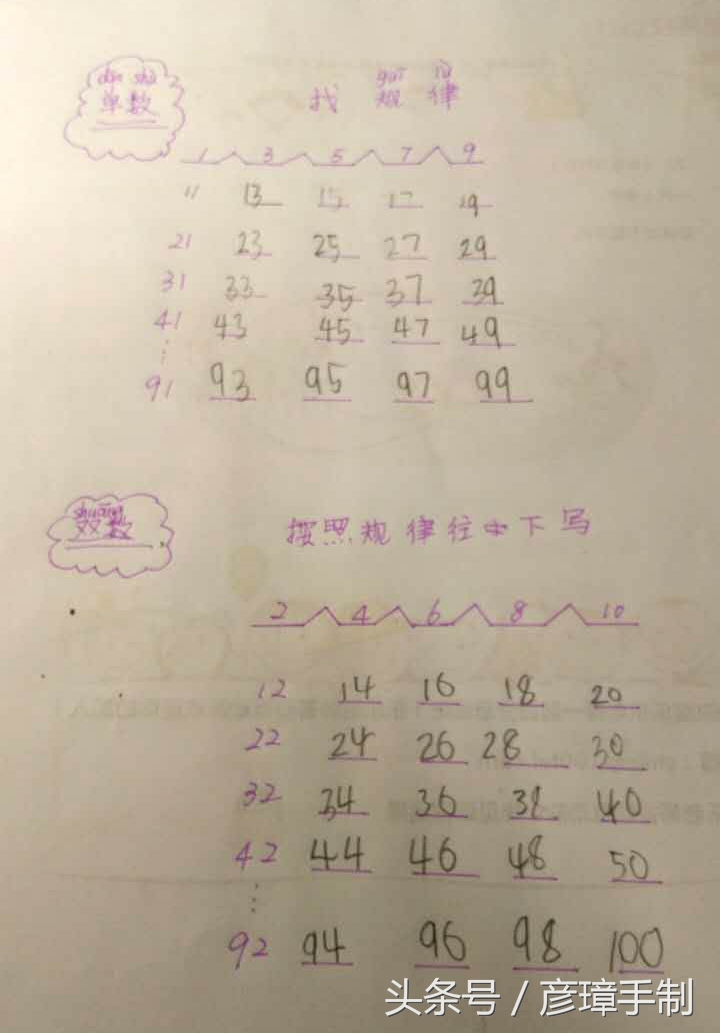 dān shù
单数
guī lǜ
找 规 律
1 3 5 7 9
11 13 15 17 19
21 23 25 27 29
31 33 35 37 39
41 43 45 47 49
⋮
91 93 95 97 99
shuāng
双数
按照规律往下写
2 4 6 8 10
12 14 16 18 20
22 24 26 28 30
32 34 36 38 40
42 44 46 48 50
⋮
92 94 96 98 100
头条号 / 彦璋手制